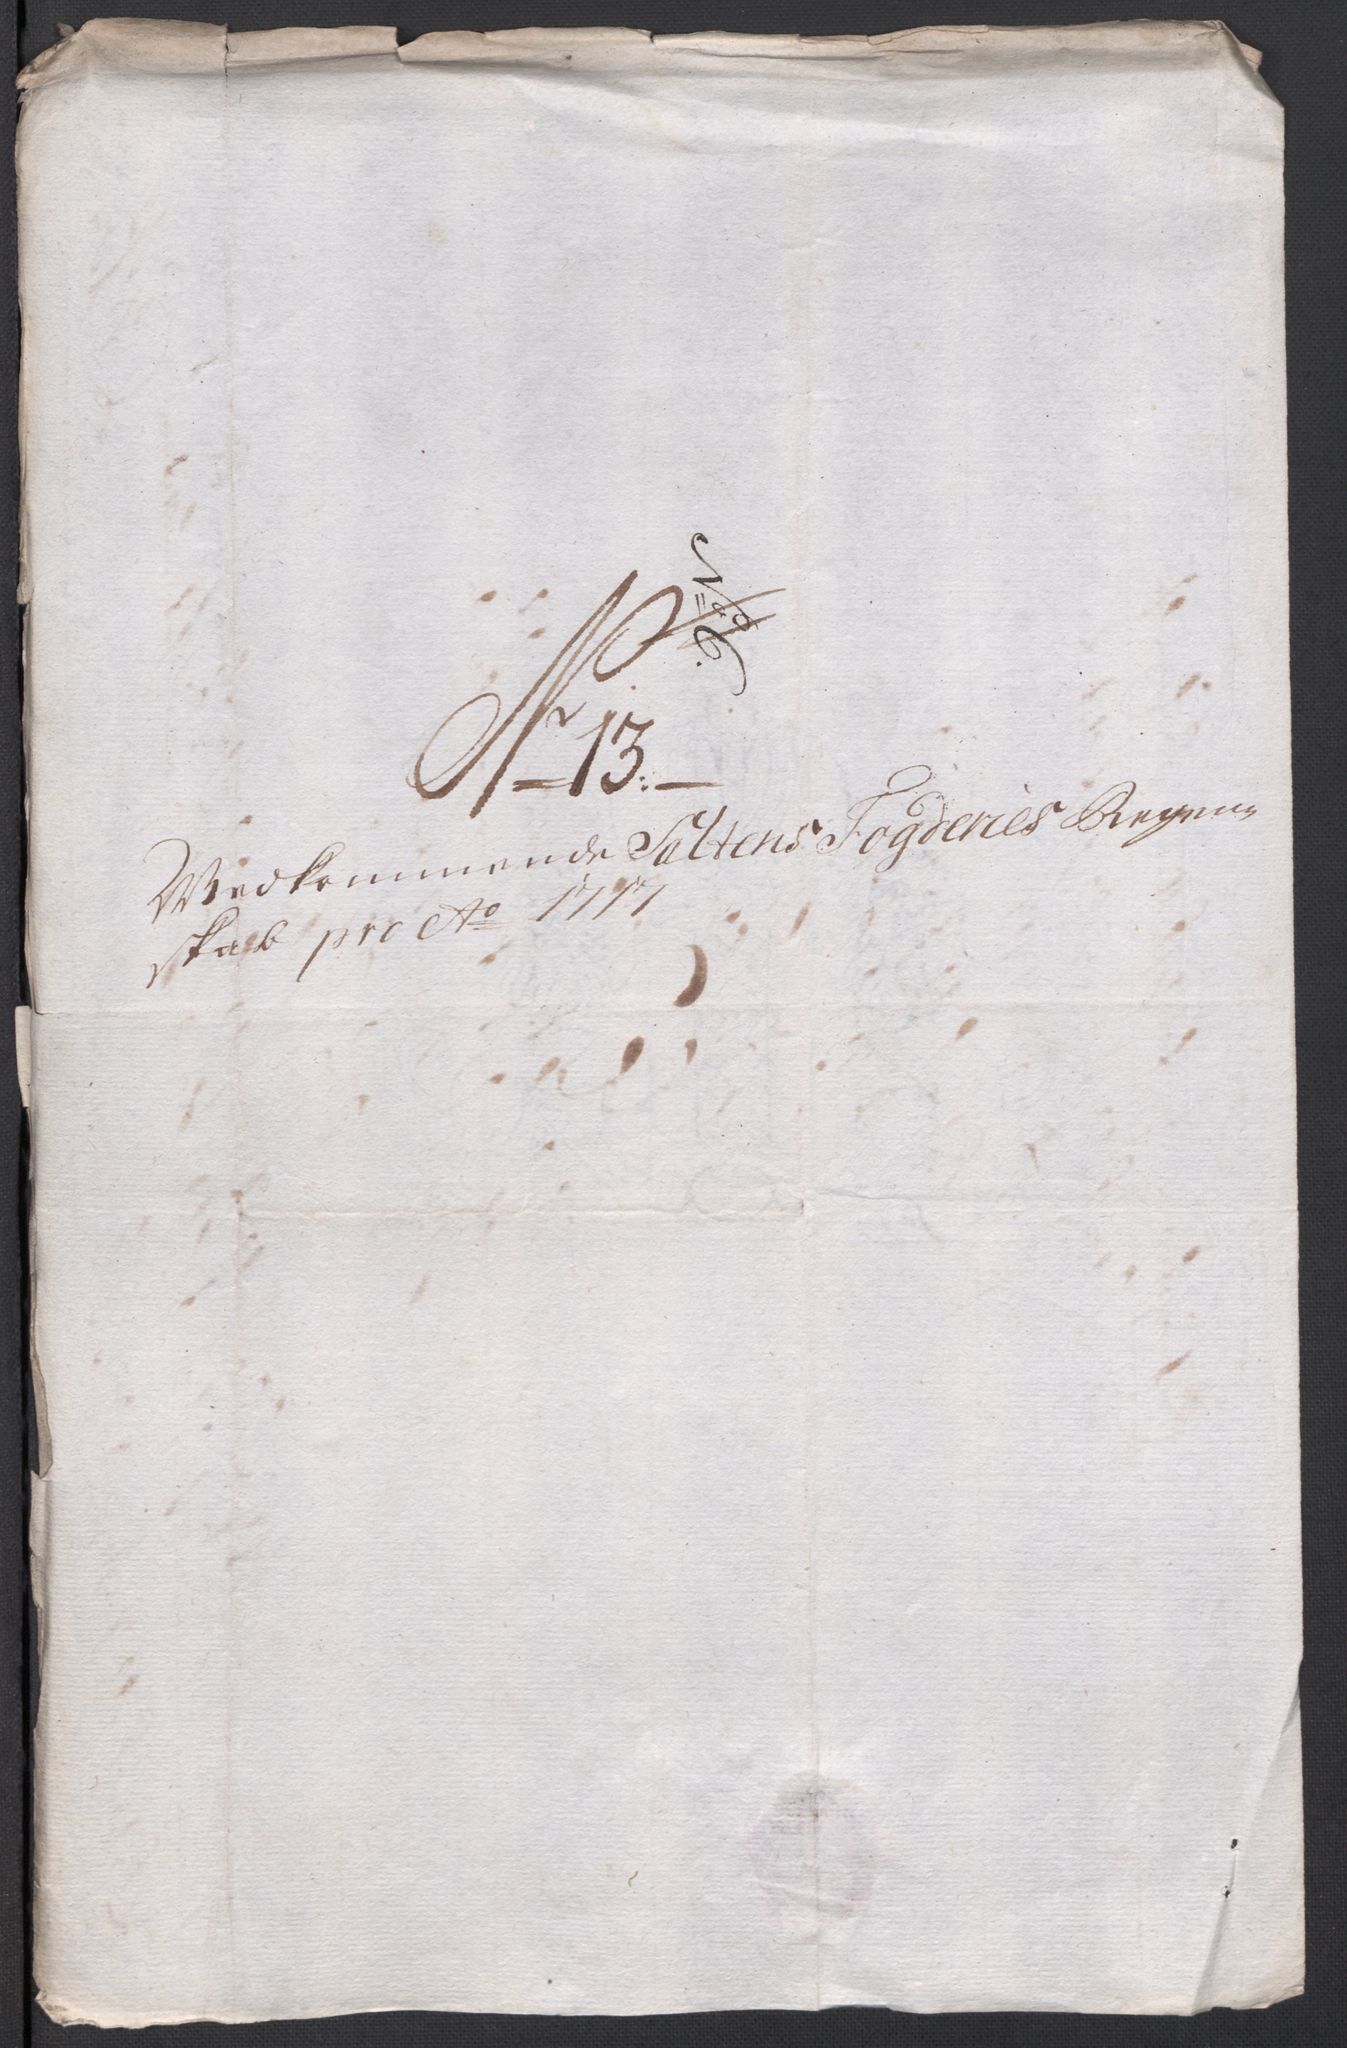 Nr 13.
Wedkommende Saltens Fogderies Regen-
skab pro Ao 1717